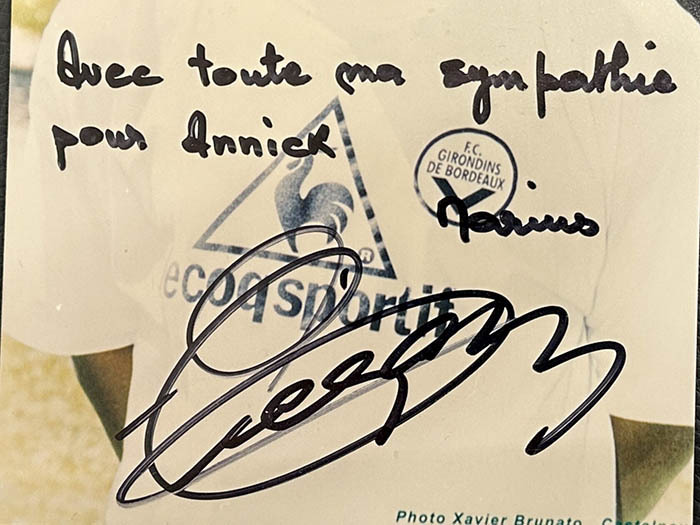 Avec toute ma sympathie
pour Annick
F.C.
GIRONDINS
DE BORDEAUX
Marius
ecoq sportif
Photo Xavier Brunato